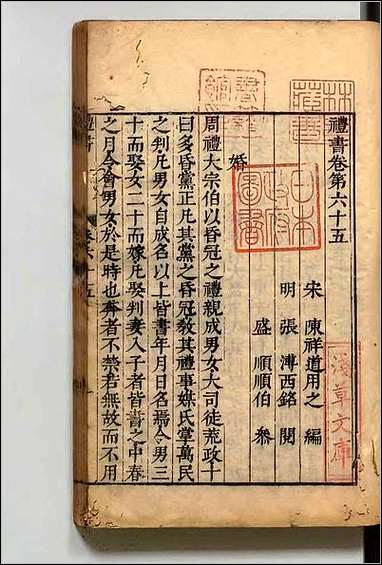 禮書卷第六十五
宋 陳祥道用之 編
明 張溥西銘 閱
盛順順伯 叅
婚
周禮大宗伯以昏冠之禮親成男女大司徒荒政十
曰多昏黨正凡其黨之昏冠教其禮事媒氏掌萬民
之判凡男女自成名以上皆書年月日名焉令男三
十而娶女二十而嫁凡娶判妻入子者皆書之中春
之月令會男女於是時也奔者不禁若無故而不用
林氏
藏書
日本
政府
圖書
淺草文庫